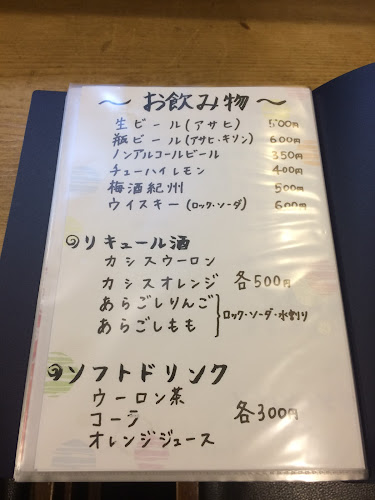 ～お飲み物～
生ビール(アサヒ) 500円
瓶ビール(アサヒ・キリン) 600円
ノンアルコールビール 350円
チューハイレモン 400円
梅酒紀州 500円
ウイスキー(ロック・ソーダ) 600円
◎リキュール酒
カシスウーロン
カシスオレンジ 各500円
あらごしりんご
あらごしもも
ロック・ソーダ・水割り
◎ソフトドリンク
ウーロン茶
コーラ 各300円
オレンジジュース